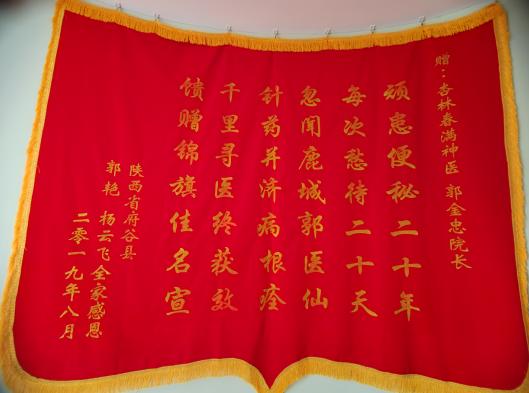 赠：杏林春满神医 郭金忠院长
顽患便秘二十年
每次愁待二十天
忽闻鹿城郭医仙
针药并济病根痊
千里寻医终获效
馈赠锦旗佳名宣
陕西省府谷县
郭艳 杨云飞全家感恩
二零一九年八月